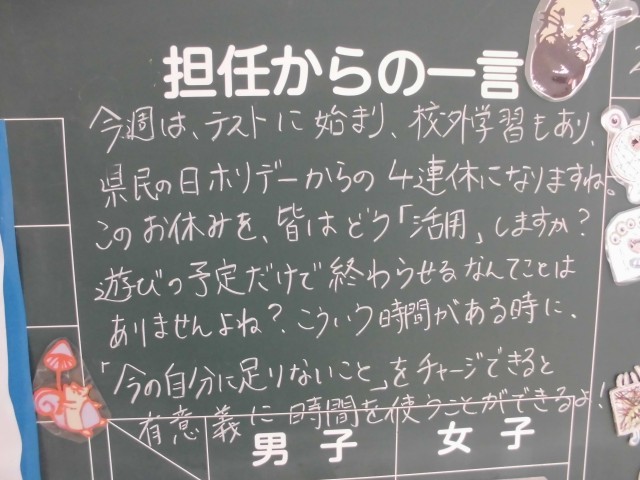 担任からの一言
今週は、テストに始まり、校外学習もあり、
県民の日ホリデーからの4連休になりますね。
このお休みを、皆はどう「活用」しますか?
遊びの予定だけで終わらせるなんてことは
ありませんよね?こういう時間がある時に、
「今の自分に足りないこと」をチャージできると
有意義に時間を使うことができるよ!
男子 女子